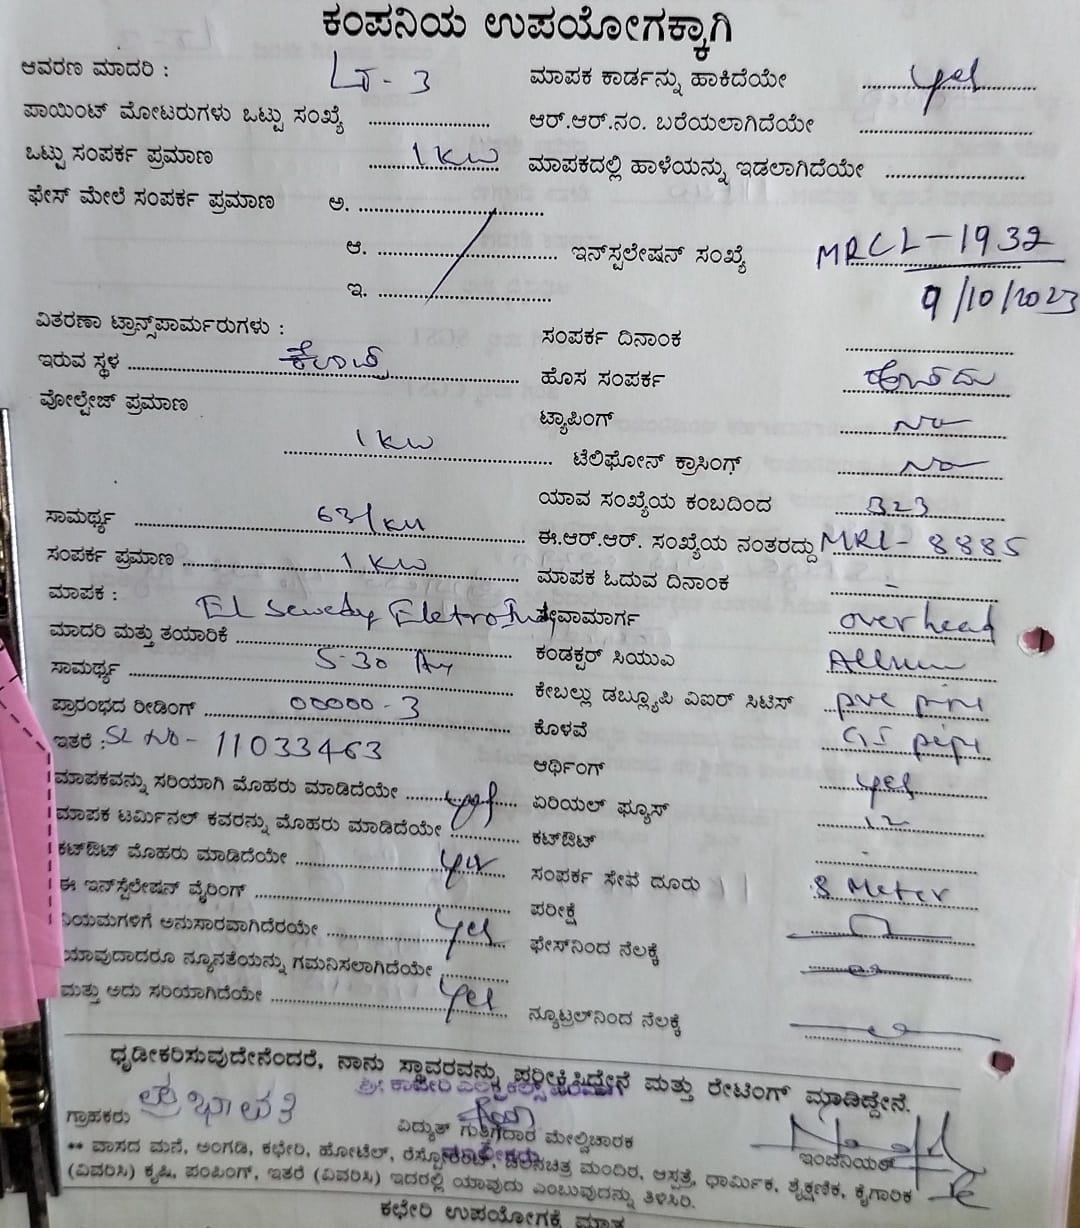 ಕಂಪನಿಯ ಉಪಯೋಗಕ್ಕಾಗಿ
ಆವರಣ ಮಾದರಿ : LT - 3 ಮಾಪಕ ಕಾರ್ಡನ್ನು ಹಾಕಿದೆಯೇ yes
ಪಾಯಿಂಟ್ ಮೋಟರುಗಳು ಒಟ್ಟು ಸಂಖ್ಯೆ ಆರ್.ಆರ್.ನಂ. ಬರೆಯಲಾಗಿದೆಯೇ
ಒಟ್ಟು ಸಂಪರ್ಕ ಪ್ರಮಾಣ 1 KW ಮಾಪಕದಲ್ಲಿ ಹಾಳೆಯನ್ನು ಇಡಲಾಗಿದೆಯೇ
ಫೇಸ್ ಮೇಲೆ ಸಂಪರ್ಕ ಪ್ರಮಾಣ ಅ.
ಆ. ಇನ್‌ಸ್ಪಲೇಷನ್ ಸಂಖ್ಯೆ MRCL-1932
ಇ. 9/10/2023
ವಿತರಣಾ ಟ್ರಾನ್ಸ್‌ಪಾರ್ಮರುಗಳು : ಸಂಪರ್ಕ ದಿನಾಂಕ
ಇರುವ ಸ್ಥಳ ಹೊಸ ಸಂಪರ್ಕ ಹೌದು
ವೋಲ್ಟೇಜ್ ಪ್ರಮಾಣ ಟ್ಯಾಪಿಂಗ್ No
1 KW ಟೆಲಿಫೋನ್ ಕ್ರಾಸಿಂಗ್ No
ಯಾವ ಸಂಖ್ಯೆಯ ಕಂಬದಿಂದ
ಸಾಮರ್ಥ್ಯ ಈ.ಆರ್.ಆರ್. ಸಂಖ್ಯೆಯ ನಂತರದ್ದು MRL - 8885
ಸಂಪರ್ಕ ಪ್ರಮಾಣ 1 KW ಮಾಪಕ ಓದುವ ದಿನಾಂಕ -
ಮಾಪಕ : El Sewedy ಸೇವಾಮಾರ್ಗ overhead
ಮಾದರಿ ಮತ್ತು ತಯಾರಿಕೆ ಕಂಡಕ್ಟರ್ ಸಿಯುಎ
ಸಾಮರ್ಥ್ಯ 5-30 ಕೇಬಲ್ಲು ಡಬ್ಲ್ಯೂಪಿ ವಿಐಆರ್ ಸಿಟಿಸ್ pvc
ಪ್ರಾರಂಭದ ರೀಡಿಂಗ್ 00000-3 ಕೊಳವೆ GI pipe
ಇತರೆ : SL No - 11033463 ಆರ್ಥಿಂಗ್ yes
ಮಾಪಕವನ್ನು ಸರಿಯಾಗಿ ಮೊಹರು ಮಾಡಿದೆಯೇ yes ಏರಿಯಲ್ ಫ್ಯೂಸ್ 12
ಮಾಪಕ ಟರ್ಮಿನಲ್ ಕವರನ್ನು ಮೊಹರು ಮಾಡಿದೆಯೇ ಕಟ್‌ಔಟ್ -
ಕಟ್‌ಔಟ್ ಮೊಹರು ಮಾಡಿದೆಯೇ yes ಸಂಪರ್ಕ ಸೇವೆ ದೂರು 8 Meter
ಈ ಇನ್‌ಸ್ಟೆಲೇಷನ್ ವೈರಿಂಗ್ ಪರೀಕ್ಷೆ
ನಿಯಮಗಳಿಗೆ ಅನುಸಾರವಾಗಿದೆರಯೇ yes ಫೇಸ್‌ನಿಂದ ನೆಲಕ್ಕೆ
ಯಾವುದಾದರೂ ನ್ಯೂನತೆಯನ್ನು ಗಮನಿಸಲಾಗಿದೆಯೇ
ಮತ್ತು ಅದು ಸರಿಯಾಗಿದೆಯೇ yes ನ್ಯೂಟ್ರಲ್‌ನಿಂದ ನೆಲಕ್ಕೆ
ಧೃಡೀಕರಿಸುವುದೇನೆಂದರೆ, ನಾನು ಸ್ಥಾವರವನ್ನು ಪರೀಕ್ಷಿಸಿದ್ದೇನೆ ಮತ್ತು ರೇಟಿಂಗ್ ಮಾಡಿದ್ದೇನೆ.
ಗ್ರಾಹಕರು ಪ್ರಭಾವತಿ ವಿದ್ಯುತ್ ಗುತ್ತಿಗೆದಾರ ಮೇಲ್ವಿಚಾರಕ ಇಂಜಿನಿಯರ್
** ವಾಸದ ಮನೆ, ಅಂಗಡಿ, ಕಛೇರಿ, ಹೋಟೆಲ್, ರೆಸ್ಟೋರೆಂಟ್, ಚಲನಚಿತ್ರ ಮಂದಿರ, ಆಸ್ಪತ್ರೆ, ಧಾರ್ಮಿಕ, ಶೈಕ್ಷಣಿಕ, ಕೈಗಾರಿಕ
(ವಿವರಿಸಿ) ಕೃಷಿ, ಪಂಪಿಂಗ್, ಇತರೆ (ವಿವರಿಸಿ) ಇದರಲ್ಲಿ ಯಾವುದು ಎಂಬುವುದನ್ನು ತಿಳಿಸಿರಿ.
ಕಛೇರಿ ಉಪಯೋಗಕ್ಕೆ ಮಾತ್ರ